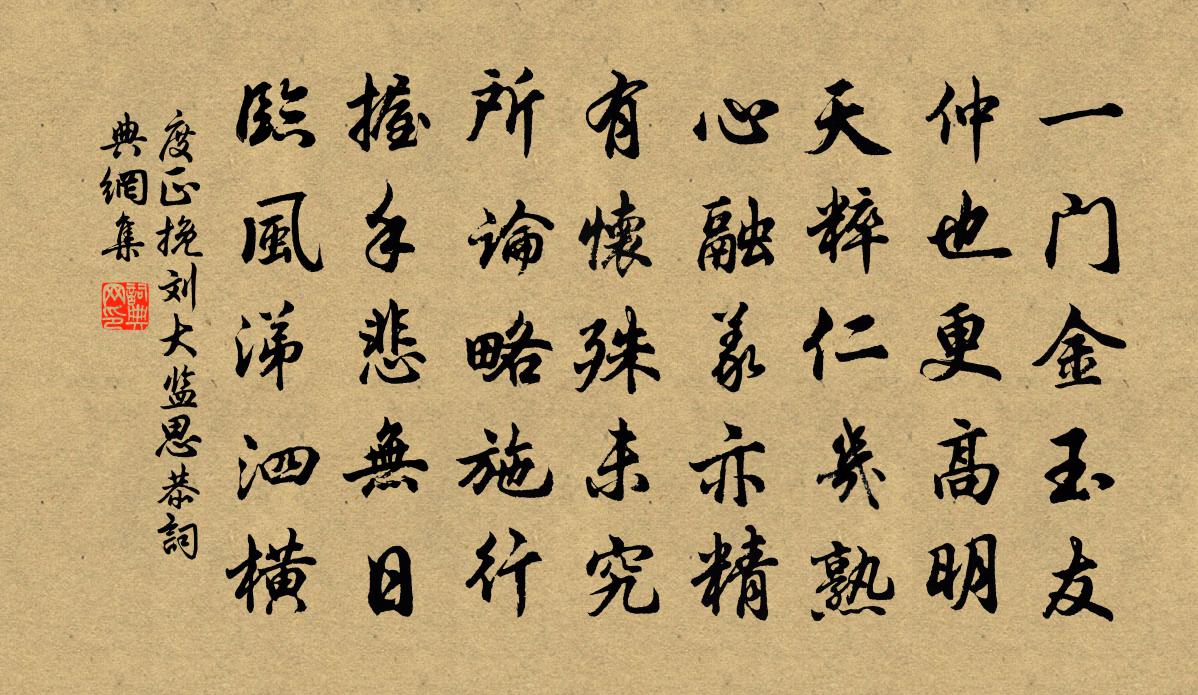 一门金玉友
仲也更高明
天粹仁几熟
心融义亦精
有懷殊未究
所論略施行
握手悲無日
臨風涕泗橫
度正挽刘大监思恭詞
典網集
詞典网印